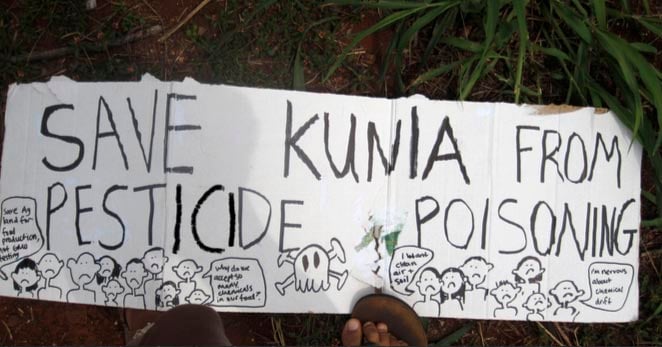 SAVE KUNIA FROM
PESTICIDE POISONING
Save Ag
land for
food
production,
not GMO
testing
Why do we
accept so
many
chemicals
in our food?
I want
clean
air +
soil
I'm nervous
about
chemical
drift